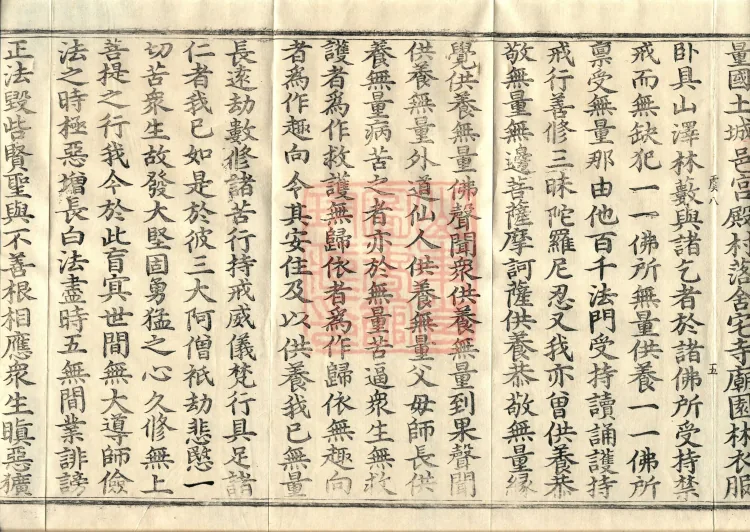 量國土城邑宮殿村落舍宅寺廟園林衣服
虞八
五
臥具山澤林藪與諸乞者於諸佛所受持禁
戒而無缺犯一一佛所無量供養一一佛所
稟受無量那由他百千法門受持讀誦護持
戒行善修三昧陀羅尼忍又我亦曾供養恭
敬無量無邊菩薩摩訶薩供養恭敬無量緣
覺供養無量佛聲聞衆供養無量到果聲聞
供養無量外道仙人供養無量父母師長供
養無量病苦之者亦於無量苦逼衆生無救
護者爲作救護無歸依者爲作歸依無趣向
者爲作趣向令其安住及以供養我已無量
長遠劫數修諸苦行持戒威儀梵行具足諸
仁者我已如是於彼三大阿僧祇劫悲愍一
切苦衆生故發大堅固勇猛之心久修無上
菩提之行我今於此盲冥世間無大導師儉
法之時極惡增長白法盡時五無間業誹謗
正法毀呰賢聖與不善根相應衆生瞋惡獷